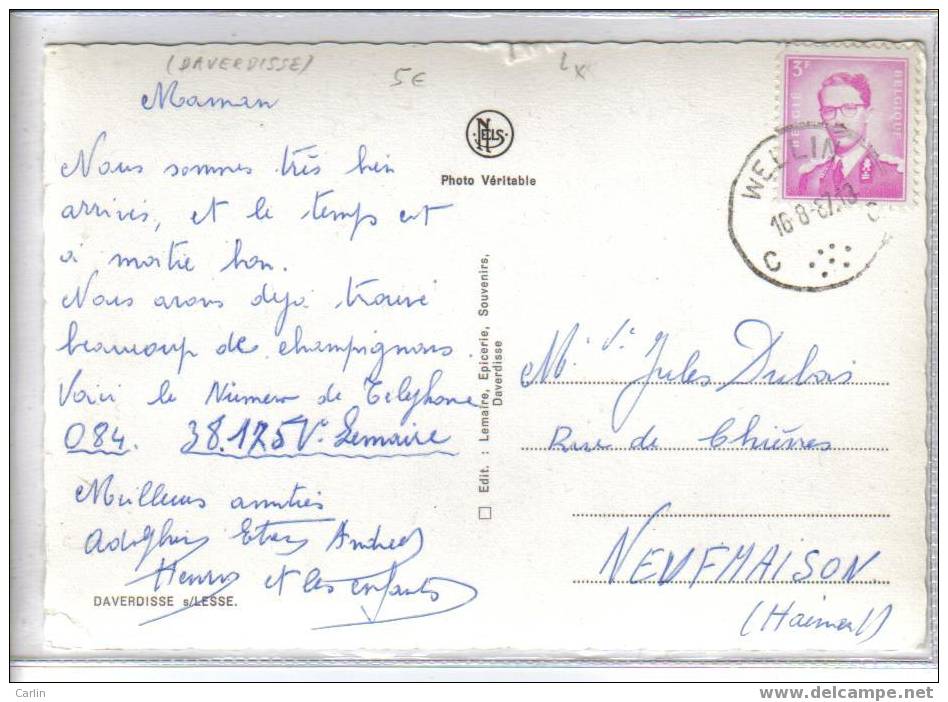 (DAVERDISSE)
5€
Maman
Nous sommes très bien
arrivés, et le temps est
à moitié bon.
Nous avons déjà trouvé
beaucoup de champignons.
Voici le Numero de Telephone
084. 38.175 Lemaire
Meilleures amitiés
Henri et les enfants
DAVERDISSE s/LESSE.
NELS
Photo Véritable
Edit. : Lemaire, Epicerie, Souvenirs,
Daverdisse
3F
BELGIE BELGIQUE
WELLIN
C C
Jules Dubois
Rue de Chièvres
NEUFMAISON
(Hainaut)
Carlin
www.delcampe.net